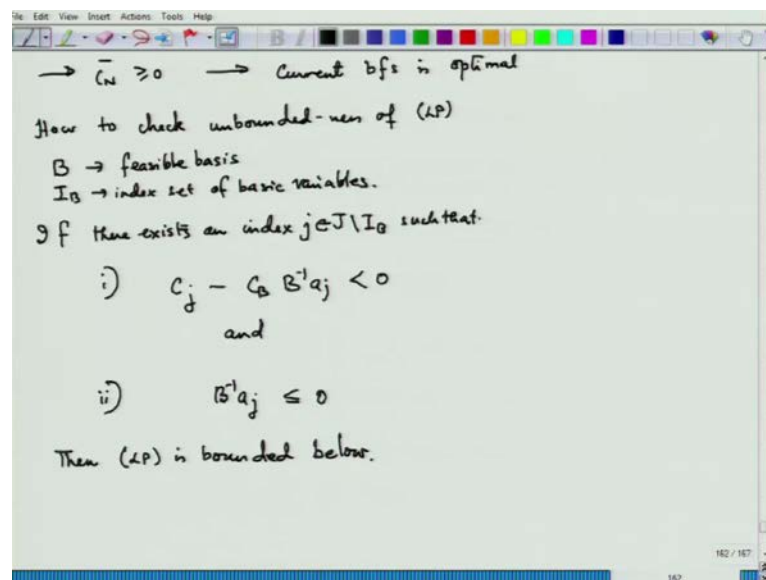 File Edit View Insert Actions Tools Help
→ C̄_N ≥ 0 → Current bfs is optimal
How to check unbounded-ness of (LP)
B → feasible basis
I_B → index set of basic variables.
If there exists an index j ∈ J \ I_B such that.
i) C_j - C_B B⁻¹a_j < 0
and
ii) B⁻¹a_j ≤ 0
Then (LP) is bounded below.
162 / 167
162